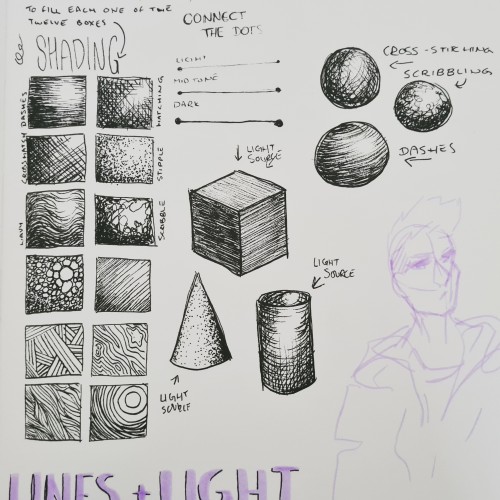 TO FILL EACH ONE OF THE
TWELVE BOXES
SHADING
CONNECT
THE DOTS
LIGHT
MIDTONE
DARK
DASHES
HATCHING
CROSSHATCH
STIPPLE
WAVY
SCRIBBLE
CROSS-STICHING
SCRIBBLING
DASHES
LIGHT
SOURCE
LIGHT
SOURCE
LIGHT
SOURCE
LINES + LIGHT